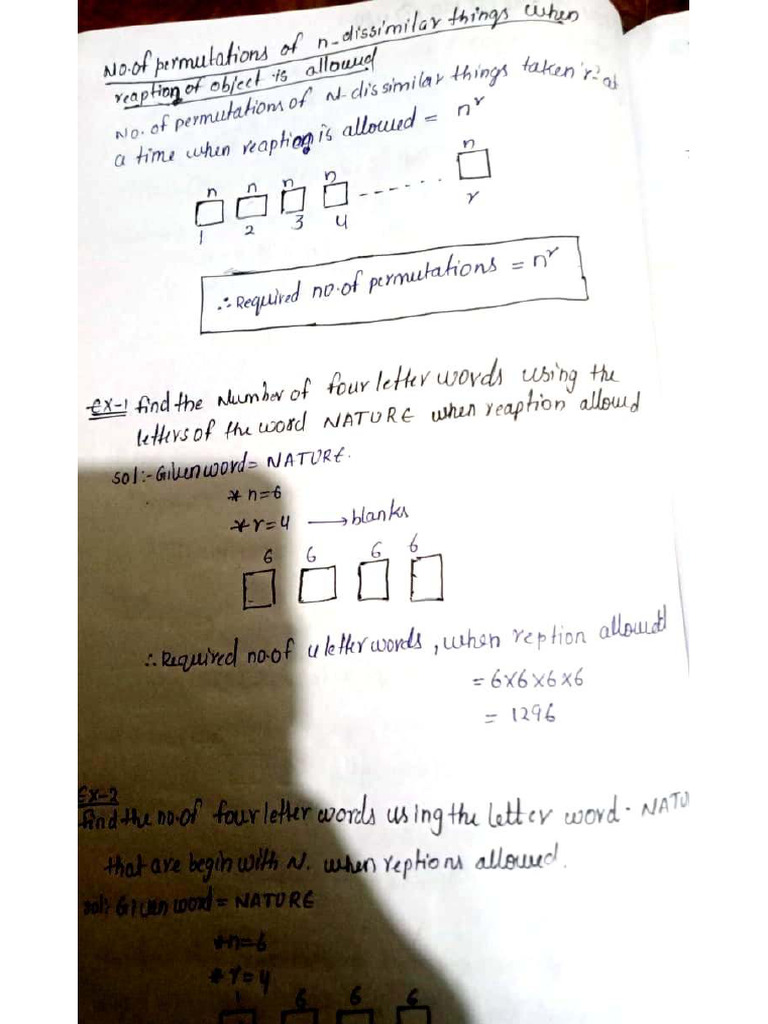 No.of permutations of n-dissimilar things when
reaption of object is allowed
No. of permutations of N-dissimilar things taken 'r' at
a time when reaption is allowed = nʳ
n n n n n
1 2 3 4 ------ r
∴ Required no.of permutations = nʳ
Ex-1 find the Number of four letter words using the
letters of the word NATURE when reaption allowed
Sol:- Given word = NATURE.
* n=6
* r=4 → blanks
6 6 6 6
∴ Required no.of 4 letter words, when reption allowed
= 6×6×6×6
= 1296
Ex-2
find the no.of four letter words using the letter word - NATU
that are begin with N. when reptions allowed.
sol: Given word = NATURE
* n=6
* r=4
1 6 6 6